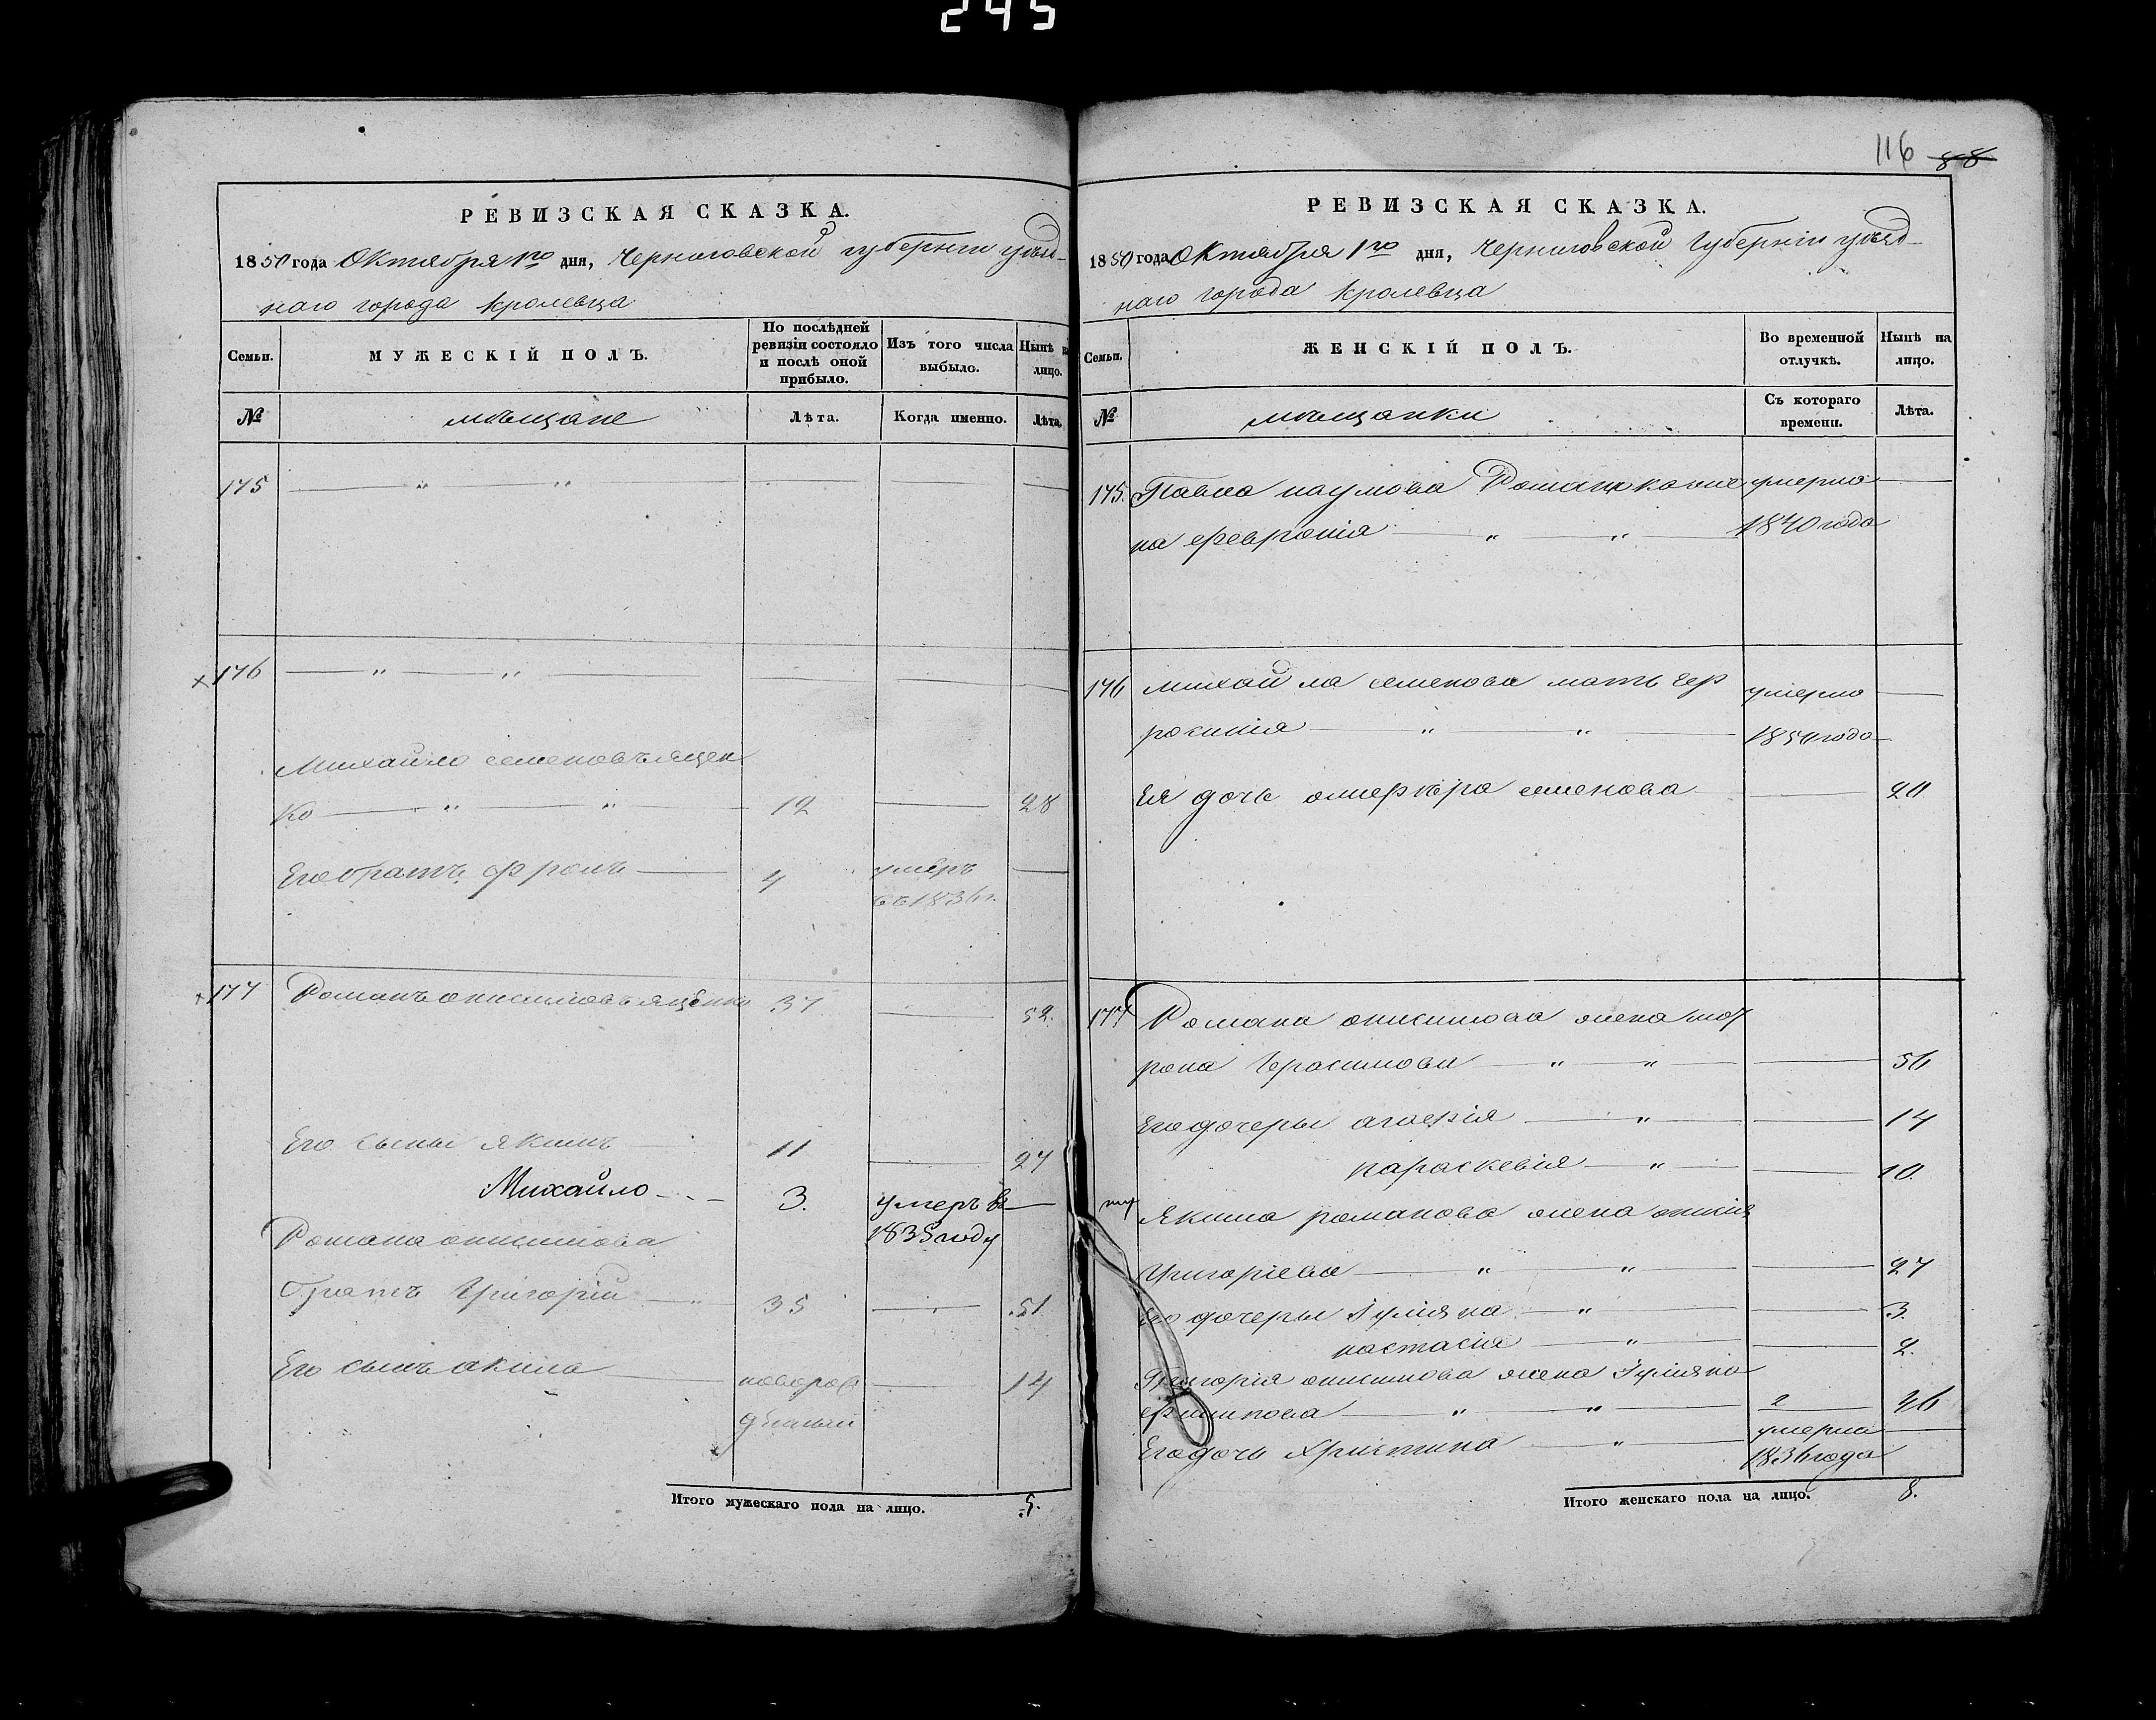 245
РЕВИЗСКАЯ СКАЗКА.
1850 года Октября 1го дня, Черниговской губерніи уѣзд-
наго города Кролевца
Семьи.
МУЖЕСКІЙ ПОЛЪ.
По послѣдней ревизіи состояло и послѣ оной прибыло.
Изъ того числа выбыло.
Нынѣ на лицо.
№
мѣщане
Лѣта.
Когда именно.
Лѣта.
175
176
Михайло семеновъ яцен
ко 12 28
Его братъ фролъ 4 умеръ
въ 1836 г.
177 Романъ онисимовъ яценко 37 52.
Его сыны якимъ 11 27
Михайло 3. умеръ въ
1835 году
Романа онисимова
братъ Григорій 35 51.
Его сынъ акила новорож 14
денный
Итого мужескаго пола на лицо. 5.
116 88
РЕВИЗСКАЯ СКАЗКА.
1850 года Октября 1го дня, Черниговской Губерніи уѣзд-
наго города Кролевца
Семьи.
ЖЕНСКІЙ ПОЛЪ.
Во временной отлучкѣ.
Нынѣ на лицо.
№
мѣщанки
Съ котораго времени.
Лѣта.
175. Павла наумова умерла
на февронія 1840 года
176 михайла семенова мать умерла
1850 года
Ея дочь семенова 20
177 Романа онисимова жена
Герасимова 56
Его дочеры агафія 14
параскевія 10.
Якима романова жена
Григоріева 27
Его дочеры Іуліяна 3.
настасія 2.
Григорія онисимова жена Іуліяна
филипова 46
Его дочь Христина умерла
1836 года
Итого женскаго пола на лицо. 8.